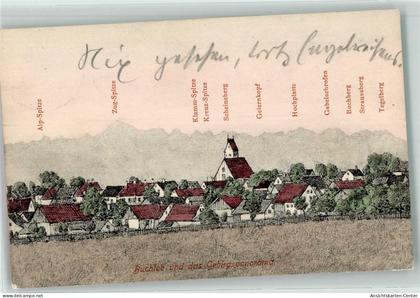 Nix gesehen, trotz
Alp-Spitze
Zug-Spitze
Klamm-Spitze
Kreuz-Spitze
Scheinberg
Geiernkopf
Hochplatte
Gabelschrofen
Buchberg
Straussberg
Tegelberg
Buchloe und das Gebirgspanorama
www.ansichtskarten-center.de
Ansichtskarten-Center